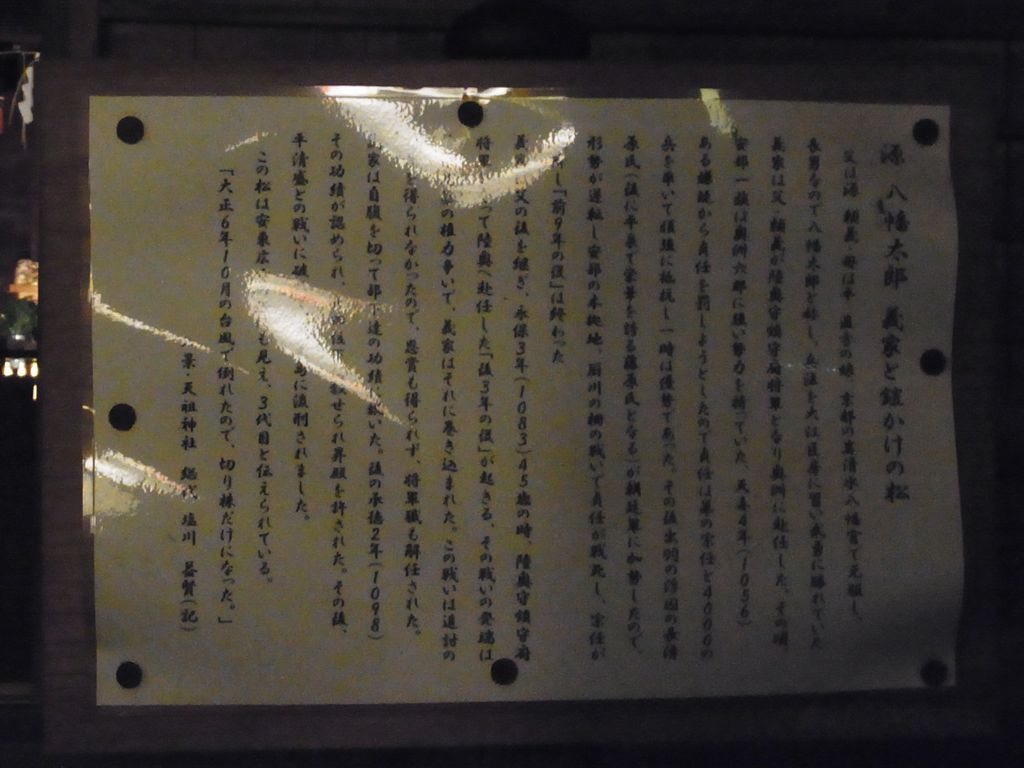 源 八幡太郎 義家と鎧かけの松
父は源 頼義・母は平 直方の娘、京都の岩清水八幡宮で元服し、
長男なので八幡太郎と称し、兵法を大江匡房に習い武勇に勝れていた
義家は父・頼義が陸奥守鎮守府将軍となり奥州に赴任した。その頃
安部一族は奥州六郡に強い勢力を持っていた、天喜4年(1056)
ある嫌疑から貞任を罰しようとしたので貞任は弟の宗任と4000の
兵を率いて頑強に抵抗し一時は優勢であった。その後出羽の俘囚の長清
原氏(後に平泉で栄華を誇る藤原氏となる)が朝廷軍に加勢したので、
形勢が逆転し安部の本拠地、厨川の柵の戦いで貞任が戦死し、宗任が
し「前9年の役」は終わった
義家は父の後を継ぎ、永保3年(1083)45歳の時、陸奥守鎮守府
将軍 って陸奥へ赴任した「後3年の役」が起きる、その戦いの発端は
の権力争いで、義家はそれに巻き込まれた。この戦いは追討の
を得られなかったので、恩賞も得られず、将軍職も解任された。
家は自腹を切って部下達の功績 報いた。後の承徳2年(1098)
その功績が認められ、 の位 叙せられ昇殿を許された。その後、
平清盛との戦いに破 島に流刑されました。
この松は安東広 も見え、3代目と伝えられている。
「大正6年10月の台風で倒れたので、切り株だけになった。」
景・天祖神社 総代 塩川 (記)